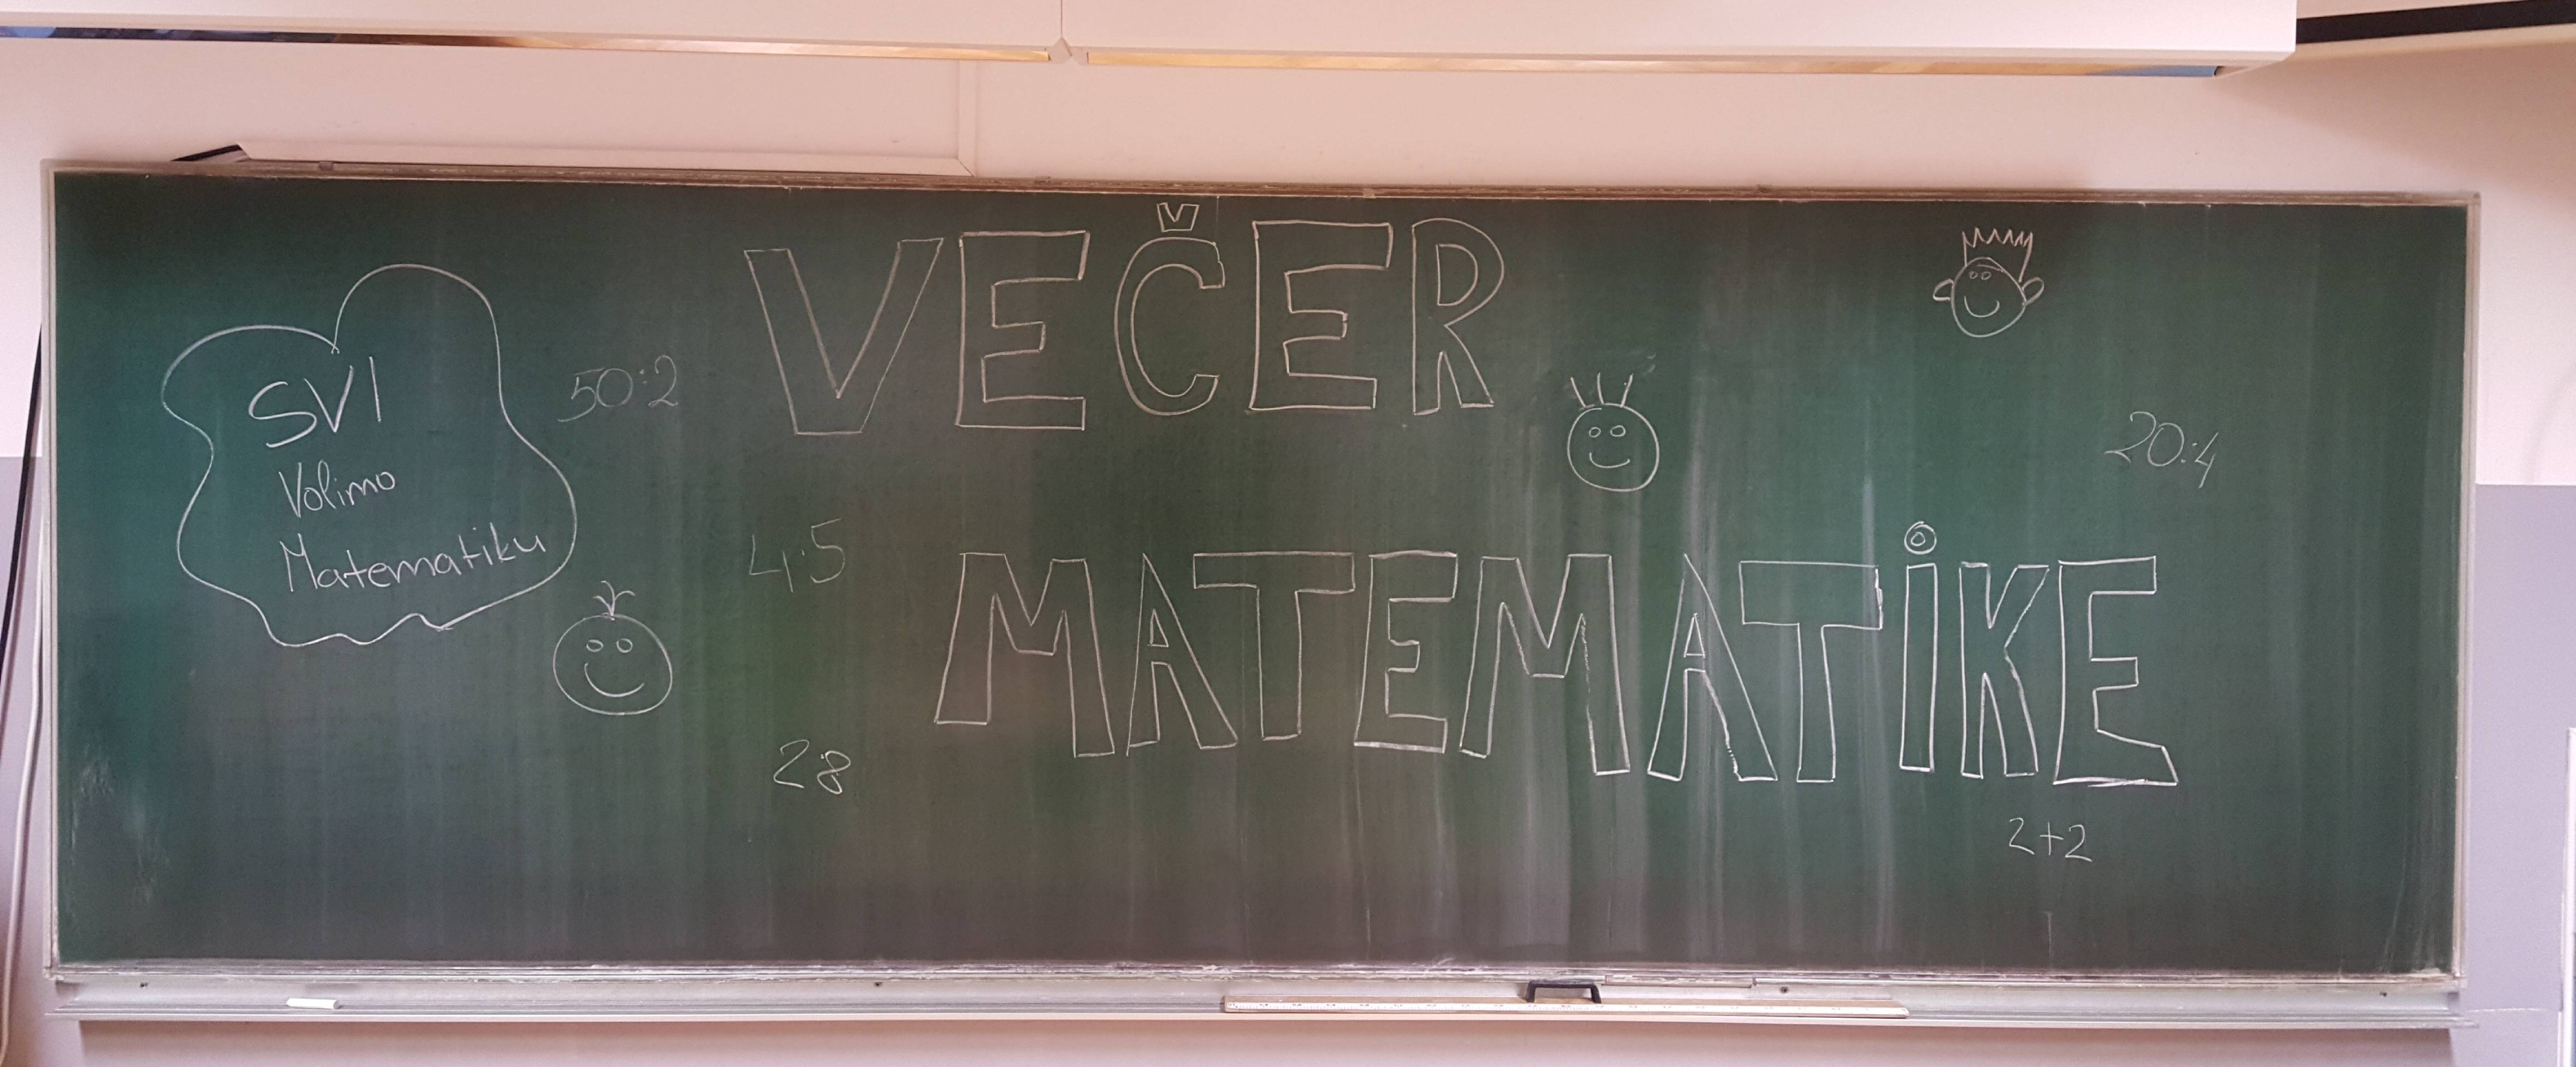 VEČER
SVI
Volimo
Matematiku
50:2
20:4
4·5
MATEMATiKE
28
2+2